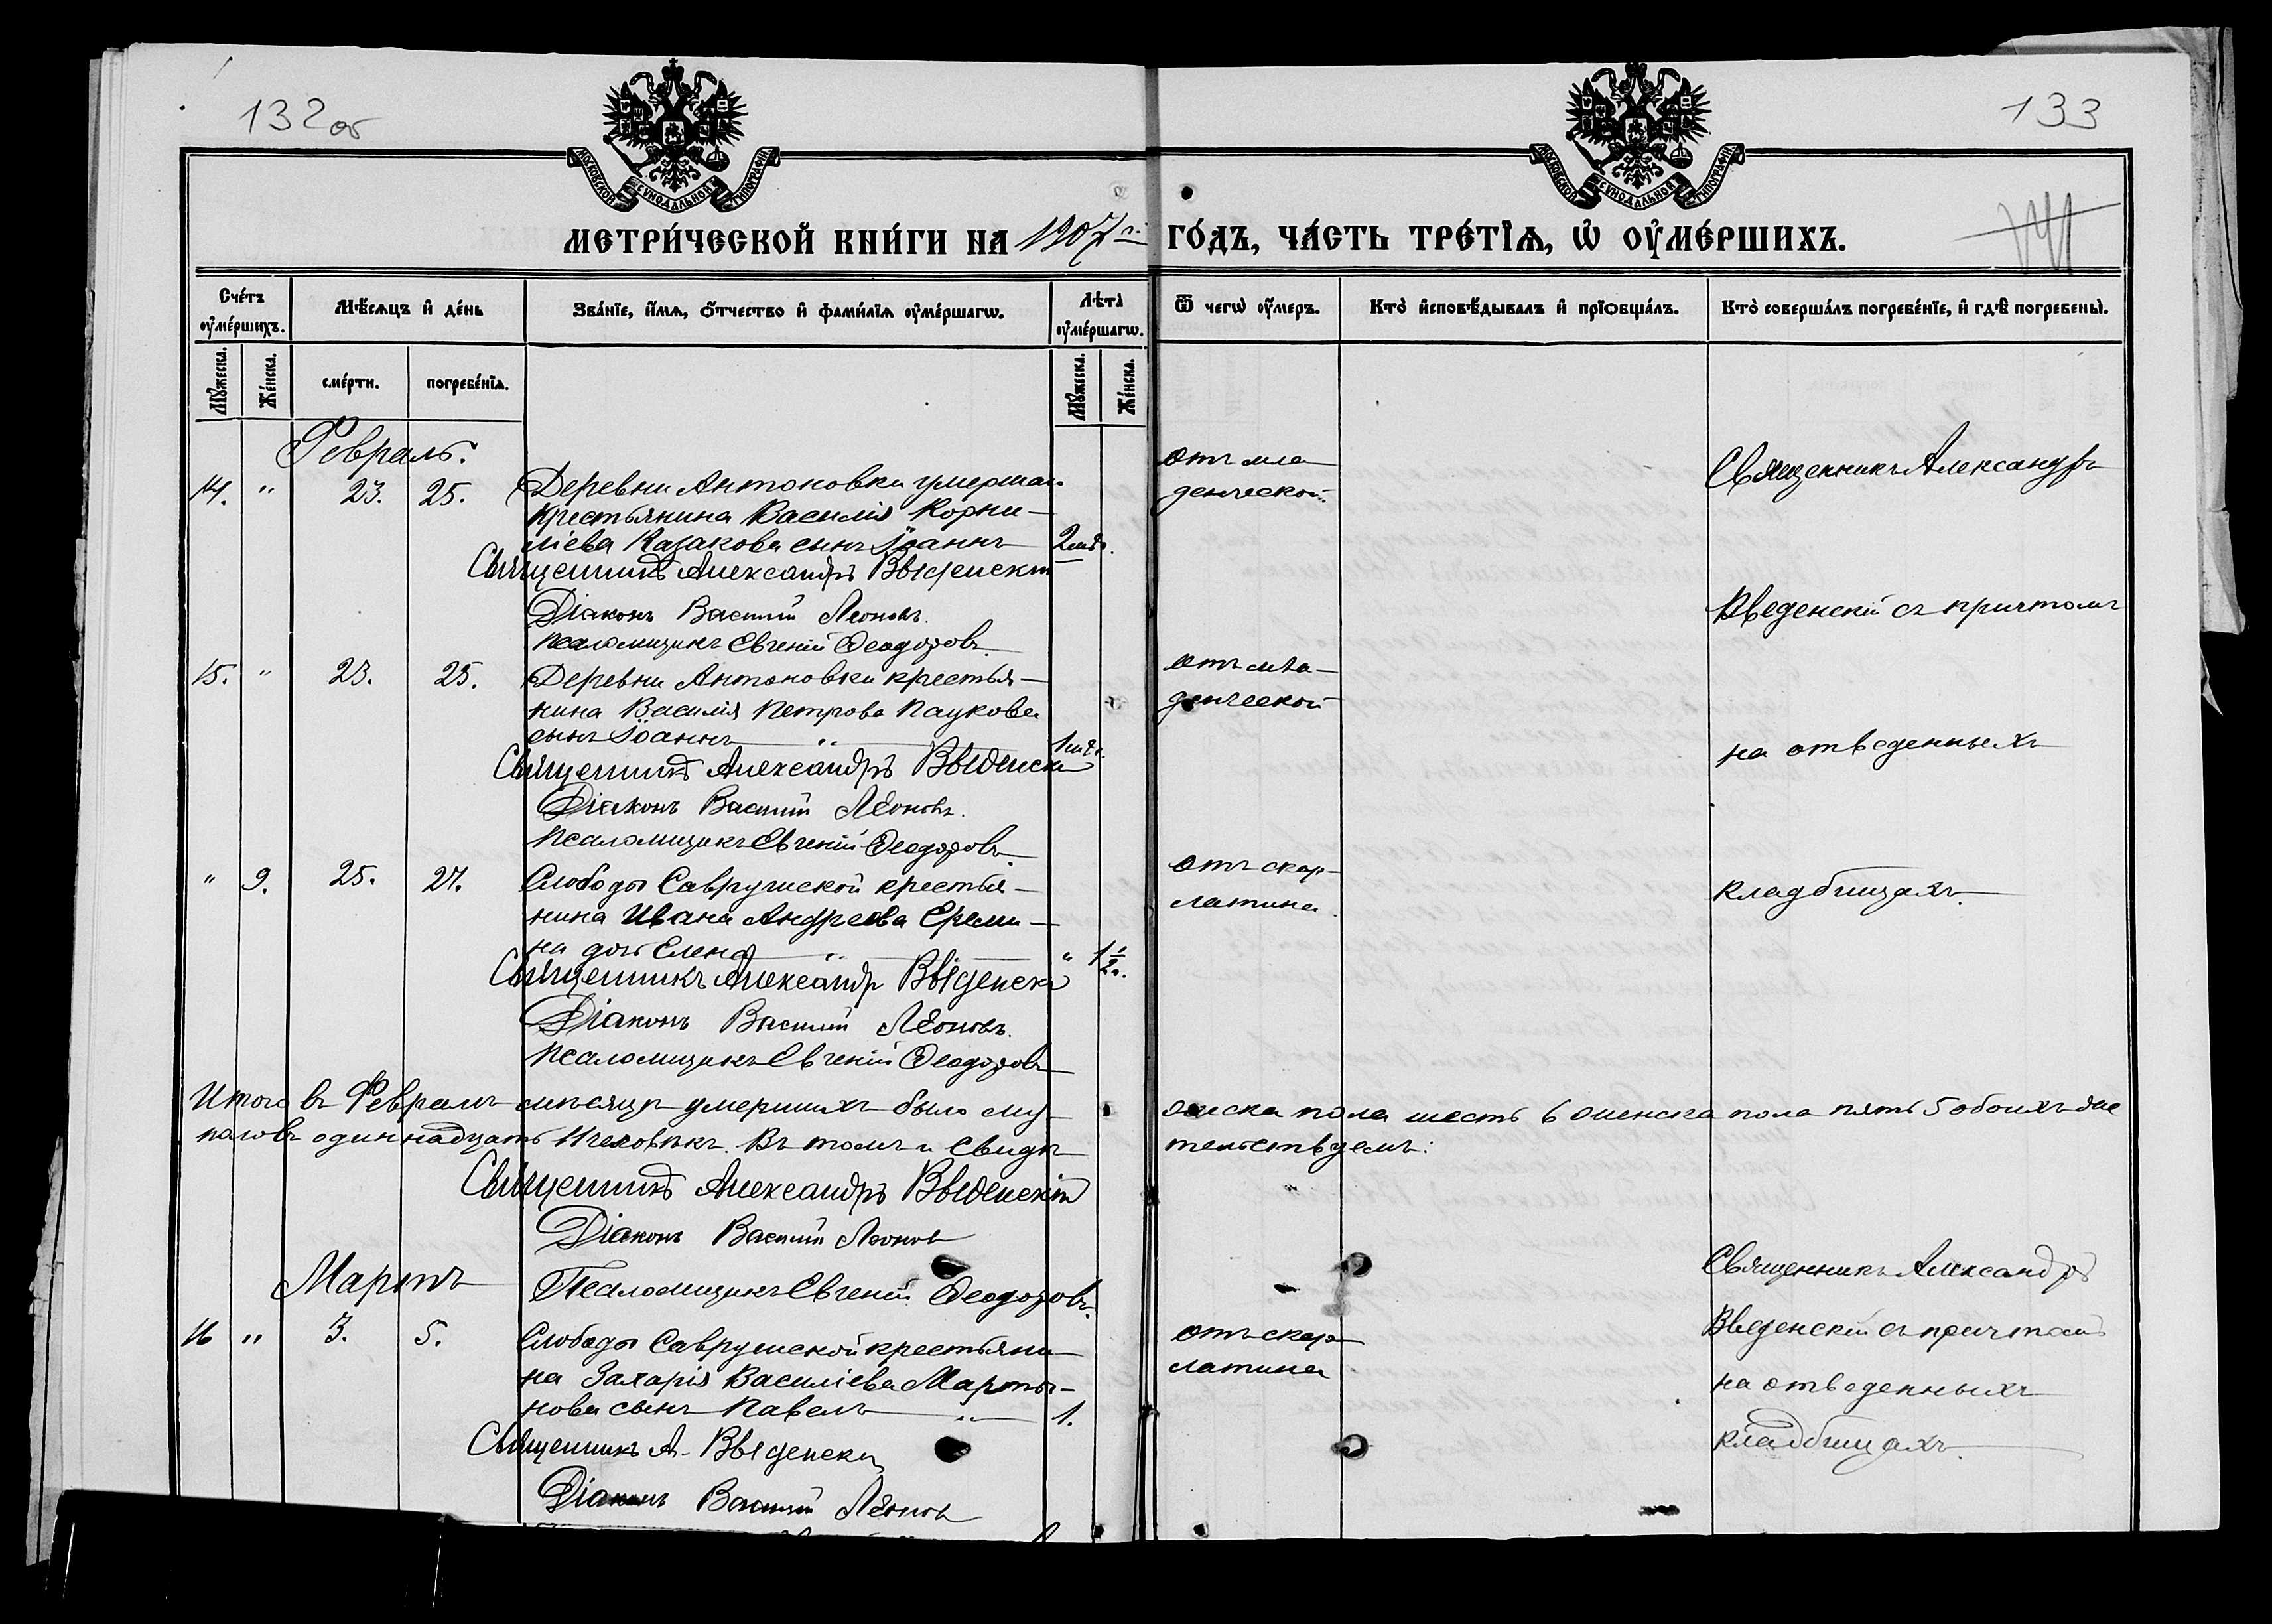 132 об
133
МОСКОВСКОЙ СѴНОДАЛЬНОЙ ТИПОГРАФІИ
МОСКОВСКОЙ СѴНОДАЛЬНОЙ ТИПОГРАФІИ
МЕТРИ́ЧЕСКОЙ КНИ́ГИ НА 1907 г. ГО́ДЪ, ЧА́СТЬ ТРЕ́ТІѦ, Ѡ҆ ОУ҆МЕ́РШИХЪ.
Сче́тъ оу҆ме́ршихъ.
Мѣ́сѧцъ и҆ де́нь
Зва́нїе, и҆́мѧ, ѻ҆́тчество и҆ фами́лїѧ оу҆ме́ршагѡ.
Лѣта̀ оу҆ме́ршагѡ.
Ѿ чегѡ̀ оу҆́меръ.
Кто̀ и҆сповѣ́дывалъ и҆ прїѻбща́лъ.
Кто̀ соверша́лъ погребе́нїе, и҆ гдѣ̀ погребены̀.
Мꙋ́жеска.
Же́нска.
сме́рти.
погребе́нїѧ.
Мꙋ́жеска.
Же́нска.
Февраль.
14. " 23. 25. Деревни Антоновки умершаго
крестьянина Василія Корни-
ліева Казакова сынъ Іоаннъ
Священникъ Александръ Введенскій
Діаконъ Василій Леоновъ.
Псаломщикъ Евгеній Ѳеодоровъ.
отъ мла
денческой.
Священникъ Александръ
Введенскій съ причтомъ
15. " 23. 25. Деревни Антоновки крестья-
нина Василія Петрова Паукова
сынъ Іоаннъ "
Священникъ Александръ Введенскій
Діаконъ Василій Леоновъ.
Псаломщикъ Евгеній Ѳеодоровъ.
отъ мла-
денческой
на отведенныхъ
" 9. 25. 27. Слободы Саврушской крестья-
нина Ивана Андреева Ереми-
на дочь Елена " " 1 1/2 г.
Священникъ Александр Введенскій
Діаконъ Василій Леоновъ.
Псаломщикъ Евгеній Ѳеодоровъ
отъ скар-
латина
кладбищахъ.
Итого въ Февралѣ мѣсяцѣ умершихъ было му жеска пола шесть 6 женска пола пять 5 обоихъ же
половъ одиннадцать 11 человѣкъ. Въ томъ и свидѣ тельствуемъ:
Священникъ Александръ Введенскій
Діаконъ Василій Леонов
Псаломщикъ Евгеній Ѳеодоровъ.
Мартъ
16 " 3. 5. Слободы Саврушской крестьяни-
на Захарія Василіева Марты-
нова сынъ Павелъ " 1.
Священникъ А. Введенскій
Діаконъ Василій Леонов
отъ скар-
латина
Священникъ Александръ
Введенскій съ причтомъ
на отведенныхъ
кладбищахъ.